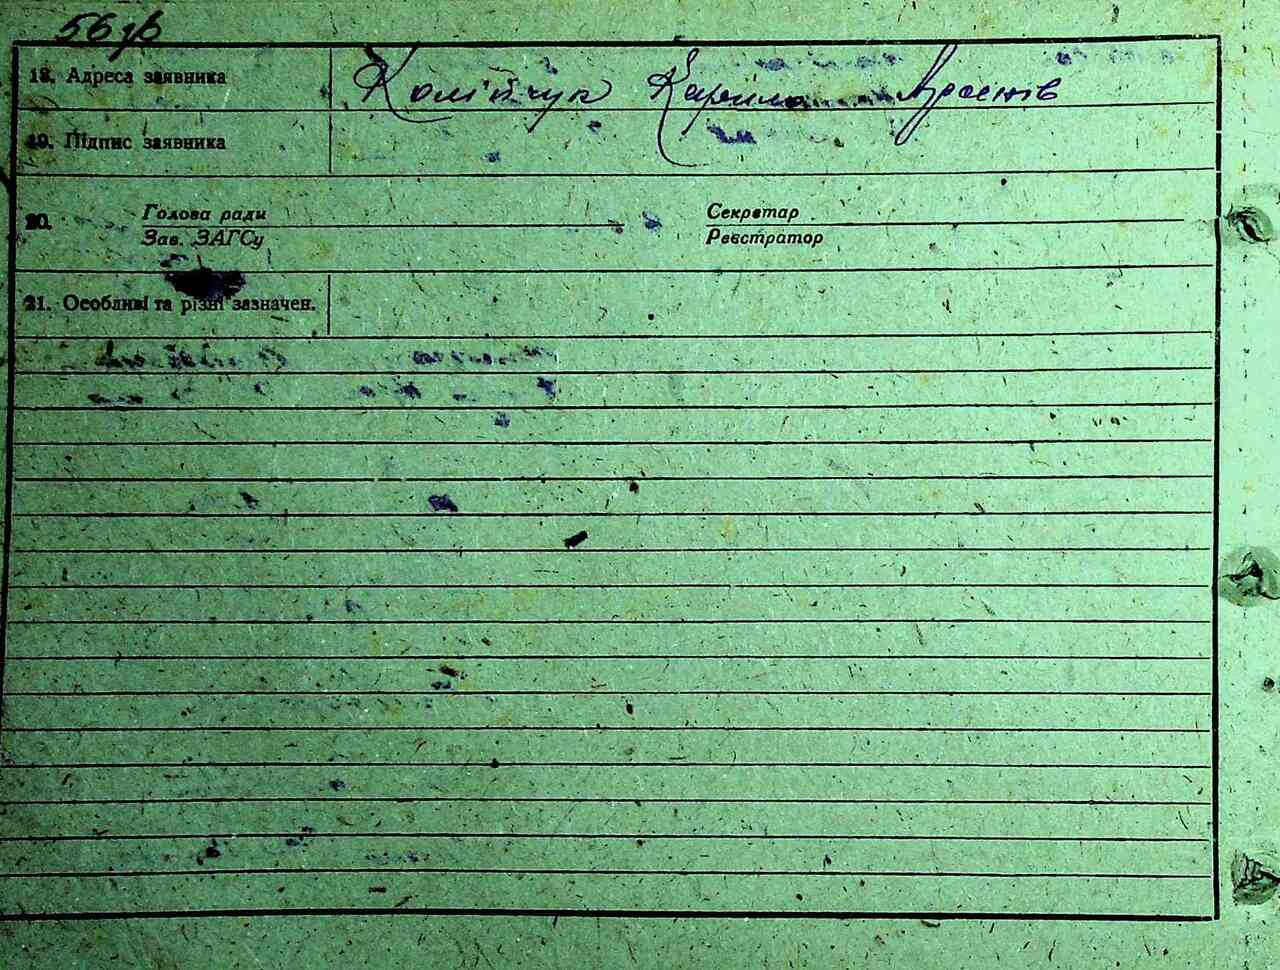 56 зв
18. Адреса заявника Колійчук Кирило
19. Підпис заявника
20. Голова ради Секретар
Зав. ЗАГСу Реєстратор
21. Особливі та різні зазначен.